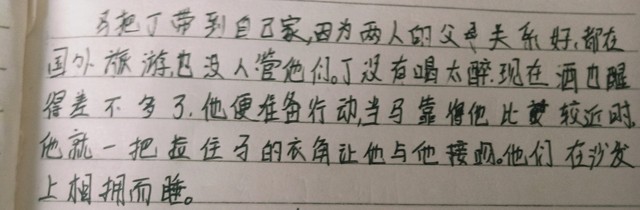 马把丁带到自己家,因为两人的父母关系好,都在
国外旅游,也没人管他们。丁没有喝太醉.现在酒也醒
得差不多了.他便准备行动,当马靠得他比较近时.
他就一把拉住马的衣角让他与他接吻。他们在沙发
上相拥而睡。